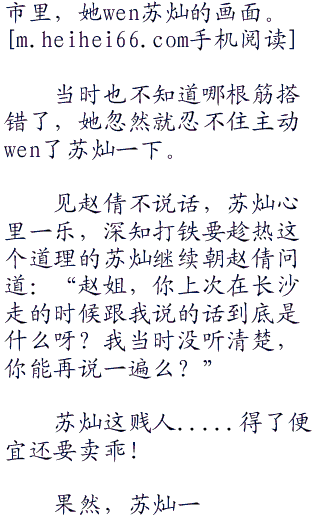 市里，她wen苏灿的画面。
[m.heihei66.com手机阅读]
当时也不知道哪根筋搭
错了，她忽然就忍不住主动
wen了苏灿一下。
见赵倩不说话，苏灿心
里一乐，深知打铁要趁热这
个道理的苏灿继续朝赵倩问
道：“赵姐，你上次在长沙
走的时候跟我说的话到底是
什么呀？我当时没听清楚，
你能再说一遍么？”
苏灿这贱人.....得了便
宜还要卖乖！
果然，苏灿一